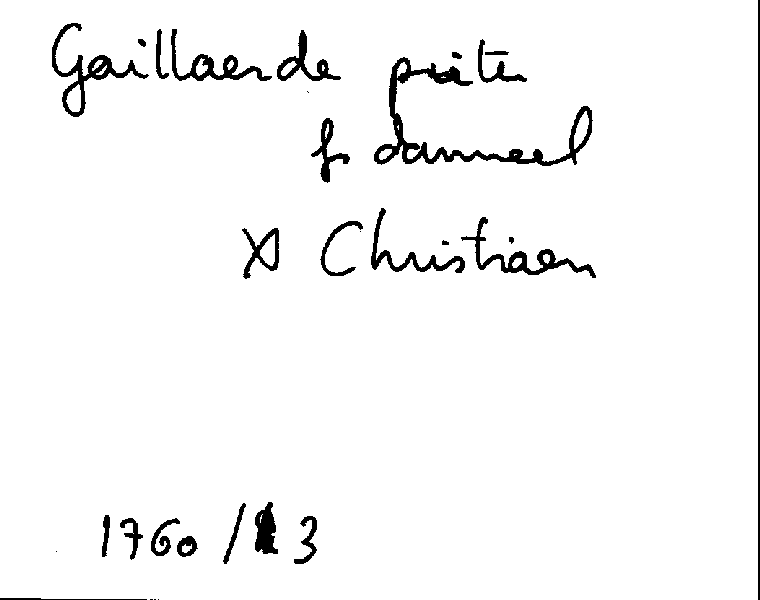 Gaillaerde pieter
fs danneel
X Christiaen
1760 / 3